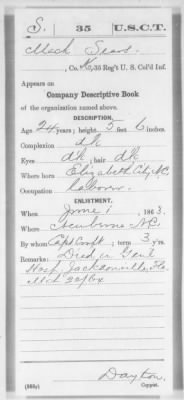 S. 35 U.S.C.T.
Mack
, Co. K, 35 Reg't U. S. Col'd Inf.
Appears on
Company Descriptive Book
of the organization named above.
DESCRIPTION.
Age 24 years; height 5 feet 6 inches.
Complexion dk
Eyes dk; hair dk
Where born Elizabeth City, N.C.
Occupation laborer
ENLISTMENT.
When June 1, 1863.
Where Newberne N.C.
By whom Capt Croft; term 3 yrs.
Remarks: Died in Genl
Hosp. Jacksonville, Fla.
Dayton
Copyist.